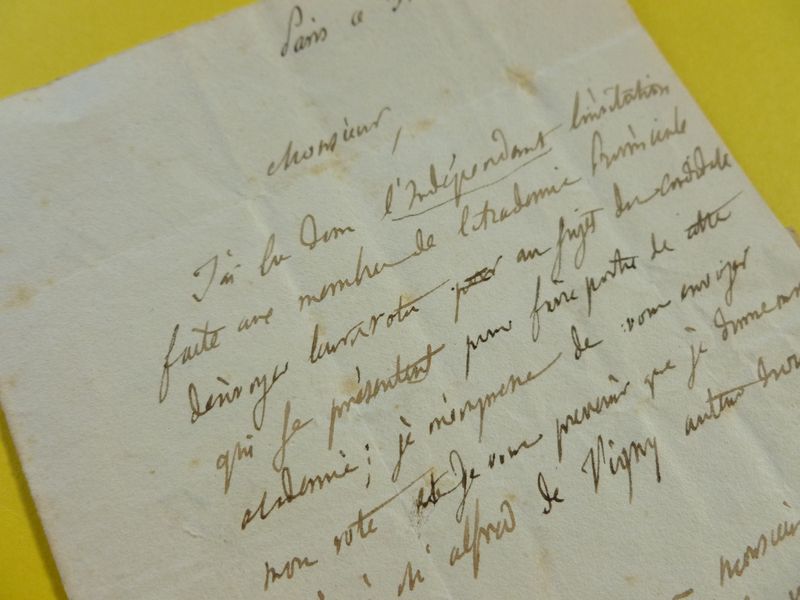 Paris ce
Monsieur,
J'ai lu dans l'Indépendant l'invitation
faite aux membres de l'Académie Provinciale
d'envoyer leurs votes au sujet des candidats
qui se présentent pour faire partie de cette
académie; je m'empresse de vous envoyer
mon vote et je vous prévenir que je donne mon
à M. alfred de Vigny auteur d'
Monsieur